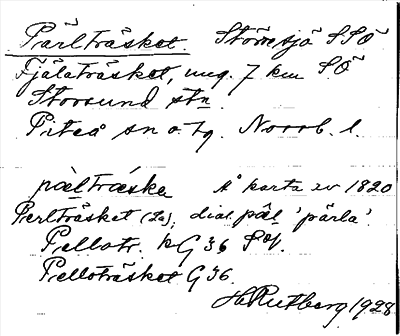 Pärlträsket. Större sjö SSÖ
Fjälaträsket, ung. 7 km SÖ
Storsund stn
Piteå sn o. tg. Norrb. l.
pàlträska Å karta av 1820
Perlträsket (2a); dial. pâl 'pärla'.
Pellotr. kG 36
Pelloträsket G 36.
H. Rutberg 1928